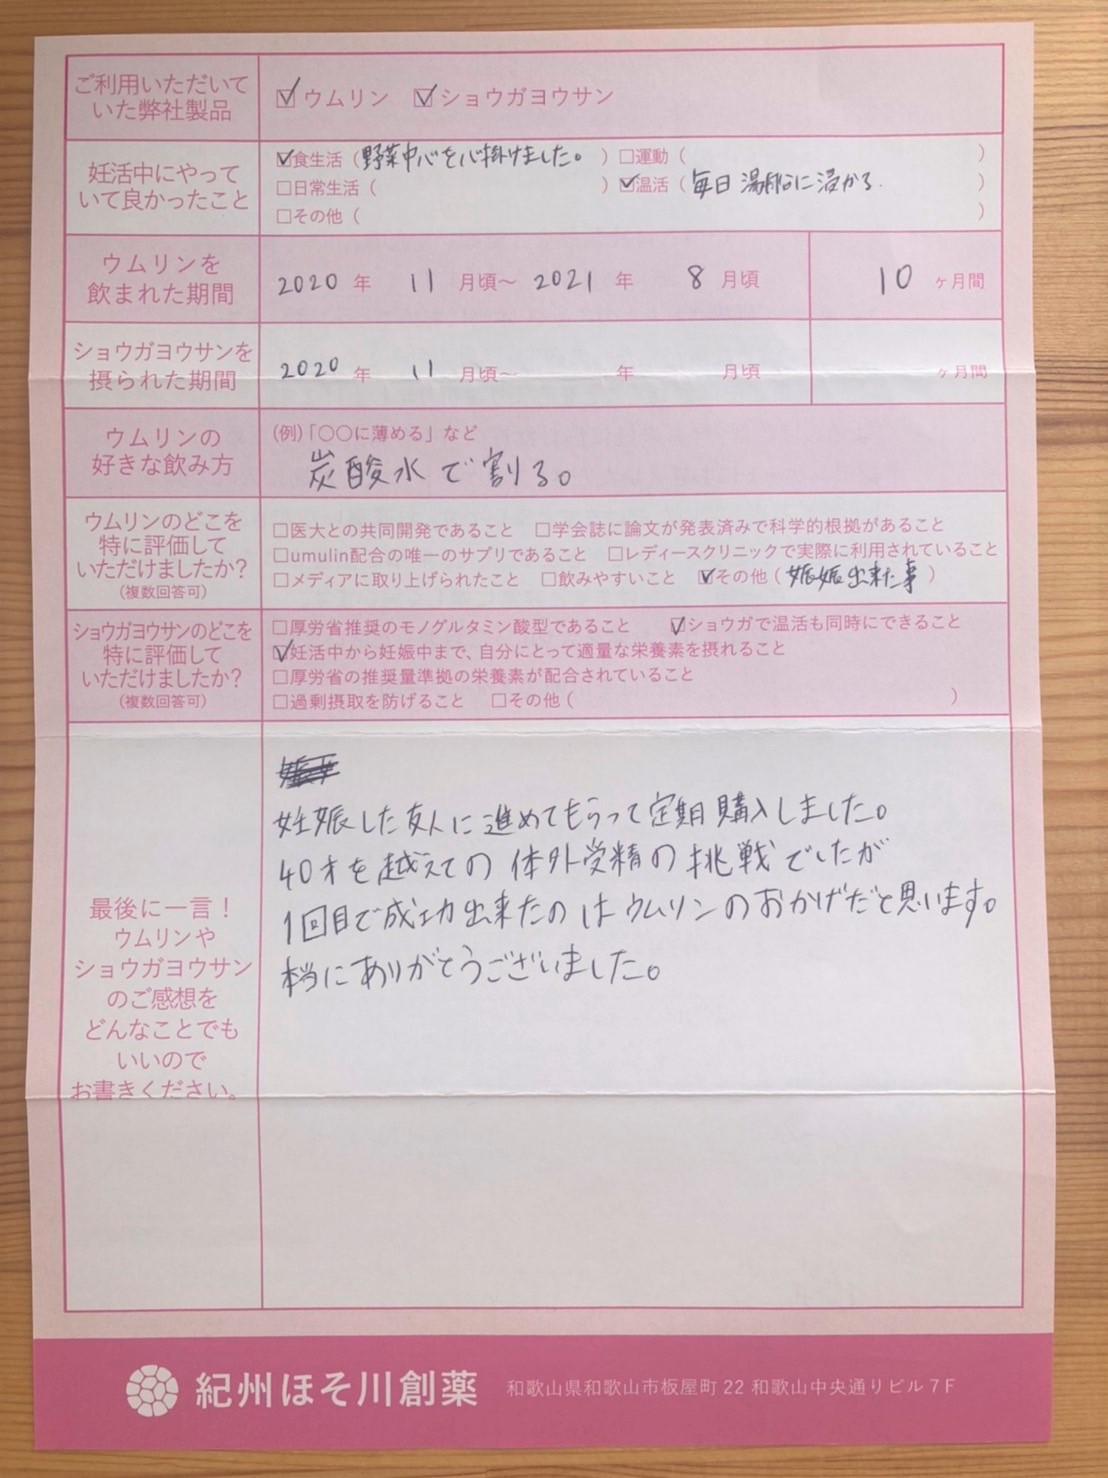 ご利用いただいて
いた弊社製品
☑ウムリン ☑ショウガヨウサン
妊活中にやって
いて良かったこと
☑食生活(野菜中心を心掛けました。)□運動( )
□日常生活( )☑温活(毎日湯船に浸かる. )
□その他( )
ウムリンを
飲まれた期間
2020 年 11 月頃〜 2021 年 8 月頃 10 ヶ月間
ショウガヨウサンを
摂られた期間
2020 年 11 月頃〜 年 月頃 ヶ月間
ウムリンの
好きな飲み方
(例)「〇〇に薄める」など
炭酸水で割る。
ウムリンのどこを
特に評価して
いただけましたか?
(複数回答可)
□医大との共同開発であること □学会誌に論文が発表済みで科学的根拠があること
□umulin配合の唯一のサプリであること □レディースクリニックで実際に利用されていること
□メディアに取り上げられたこと □飲みやすいこと ☑その他(妊娠出来た事)
ショウガヨウサンのどこを
特に評価して
いただけましたか?
(複数回答可)
□厚労省推奨のモノグルタミン酸型であること ☑ショウガで温活も同時にできること
☑妊活中から妊娠中まで、自分にとって適量な栄養素を摂れること
□厚労省の推奨量準拠の栄養素が配合されていること
□過剰摂取を防げること □その他( )
最後に一言!
ウムリンや
ショウガヨウサン
のご感想を
どんなことでも
いいので
お書きください。
妊娠した友人に進めてもらって定期購入しました。
40才を越えての体外受精の挑戦でしたが
1回目で成功出来たのはウムリンのおかげだと思います。
本当にありがとうございました。
紀州ほそ川創薬 和歌山県和歌山市板屋町 22 和歌山中央通りビル 7F